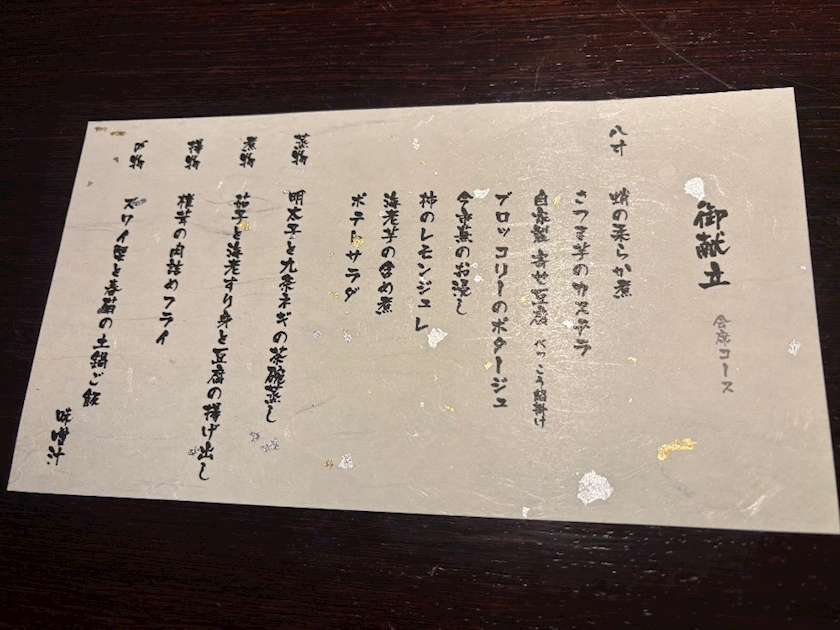 御献立
会席コース
八寸
蛸の柔らか煮
さつま芋のカステラ
自家製寄せ豆腐 べっこう餡掛け
ブロッコリーのポタージュ
のお浸し
柿のレモンジュレ
海老芋の含め煮
ポテトサラダ
蒸物
明太子と九条ネギの茶碗蒸し
煮物
茄子と海老すり身と豆腐の揚げ出し
揚物
椎茸の肉詰めフライ
〆物
ズワイ蟹と の土鍋ご飯
味噌汁